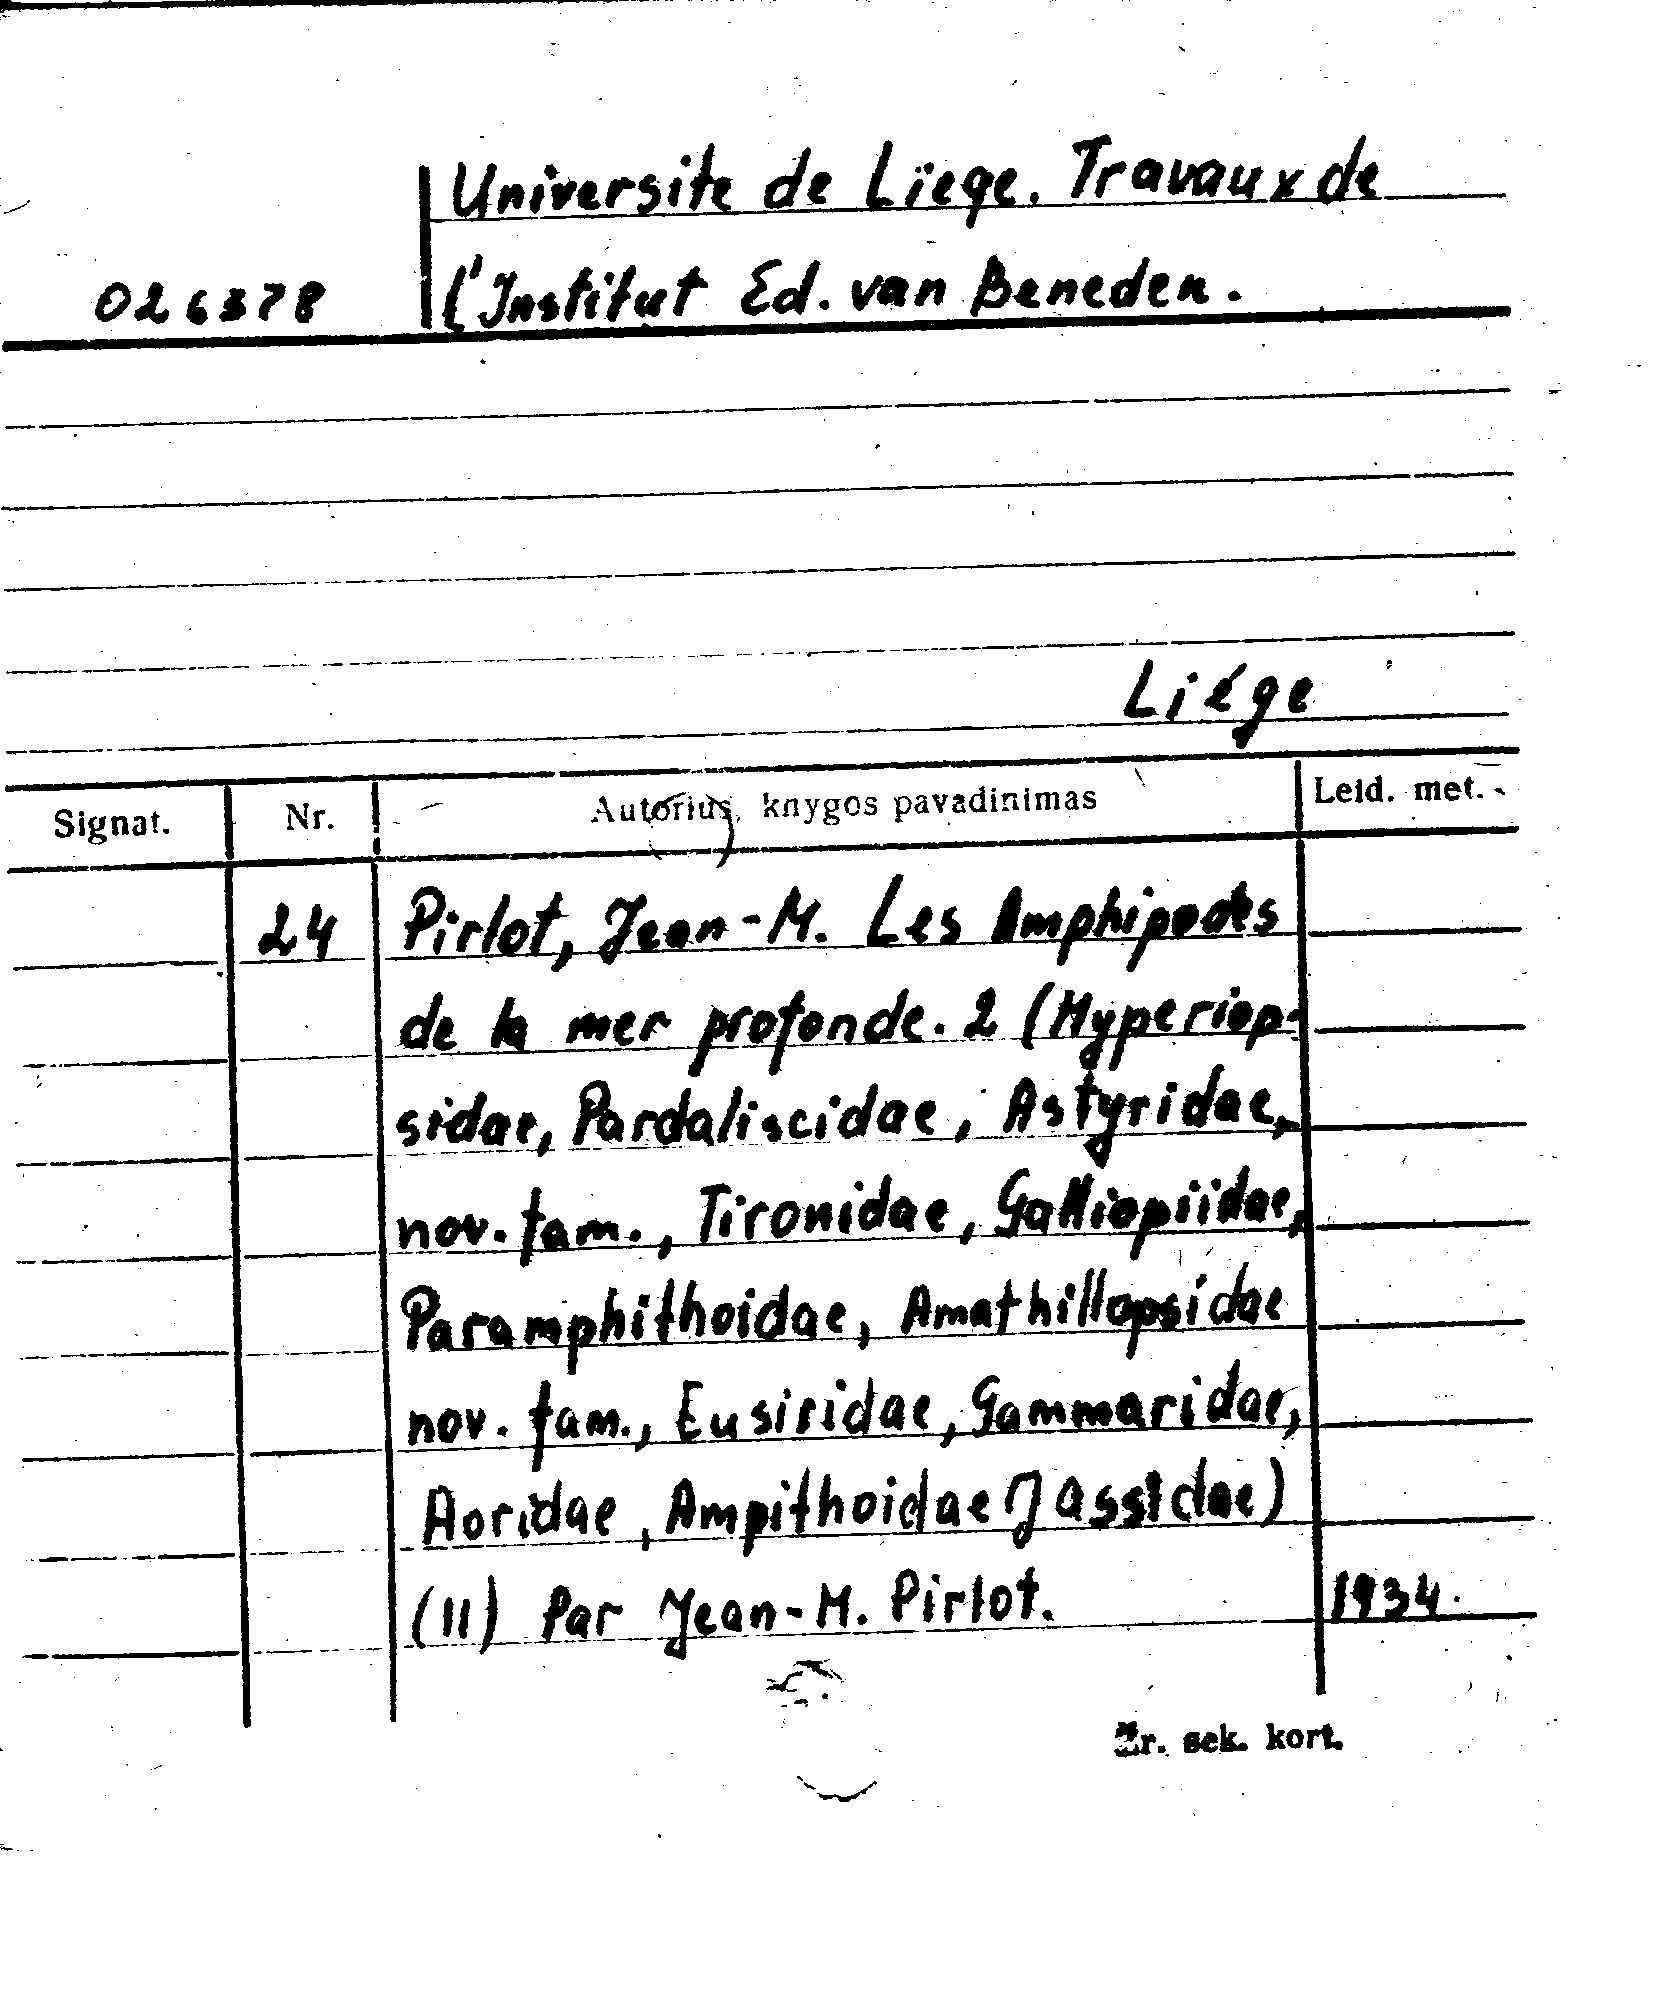 Universite de Liege. Travaux de
026378 l'Institut Ed. van Beneden.
Liége
Signat. Nr. Autorius, knygos pavadinimas Leid. met.
24 Pirlot, Jean-M. Les Amphipodes
de la mer profonde. 2 (Hyperiop-
sidae, Pardaliscidae, Astyridae,
nov. fam., Tironidae, Galliopiidae,
Paramphithoidae, Amathillopsidae
nov. fam., Eusiridae, Gammaridae,
Aoridae, Ampithoidae Jassidae)
(II) Par Jean-M. Pirlot. 1934.
Žr. sek. kort.